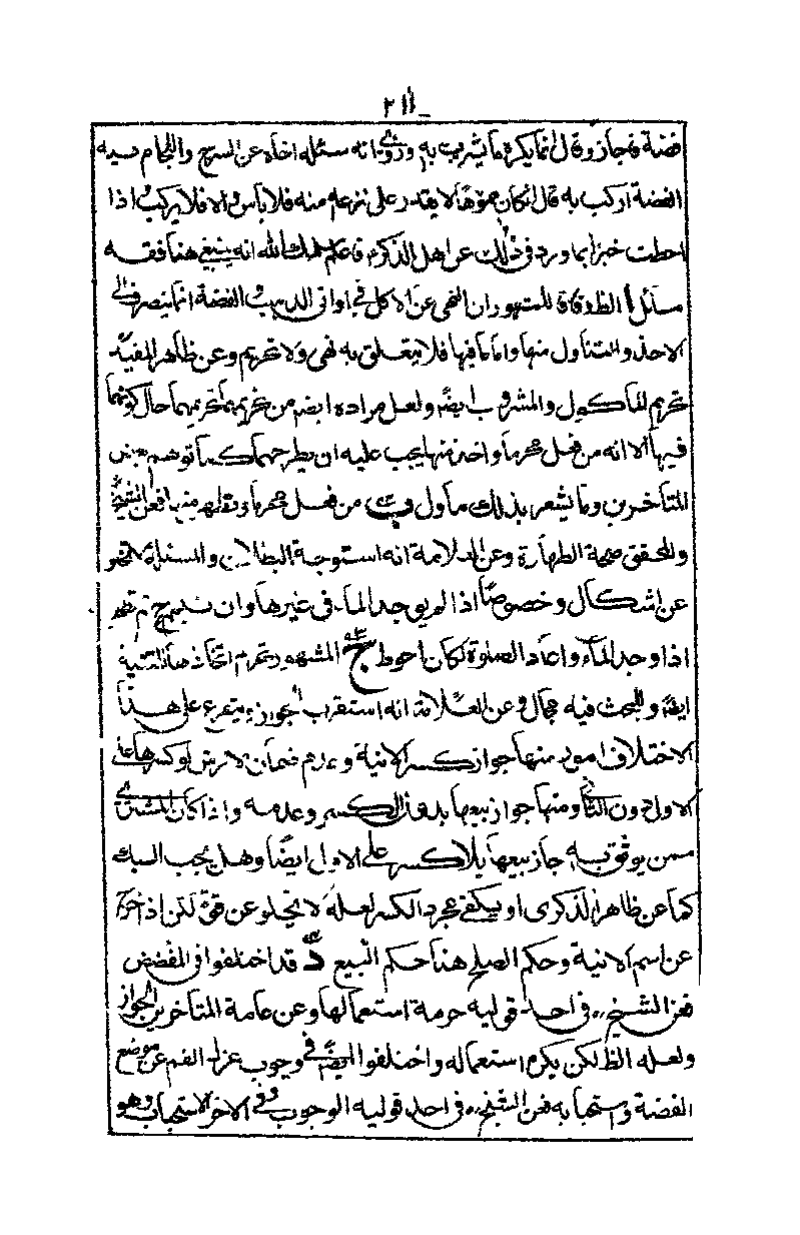 ٢١١
فضة فجاز وقال انما يكره ما يشرب به وروى انه سئله اخاه عن السرج واللجام فيه
الفضة اركب به قال ان كان مموهاً لا يقدر على نزعه منه فلا باس والا فلا يركب اذا
احطت خبراً بما ورد في ذلك عن اهل الذكر فاعلم انه ينبغي هنا فقه
مسائل ا الظ وفاقا للمشهور ان النهى عن الاكل في اواني الذهب والفضة انما ينصرف الى
الاخذ والتناول منها واما ما فيها فلا يتعلق به نهى ولا تحريم وعن ظاهر المفيد
تحريم الماكول والمشروب ايضاً ولعل مراده ايضاً من تحريمهما تحريمهما حال كونهما
فيها الا انه من فعل محرماً واخذ منها يجب عليه ان يطرحهما كما توهم بعض
المتأخرين وما يشعر بذلك ماول ب من فعل محرماً وتطهر منها فعن الشيخ
والمحقق صحة الطهارة وعن العلامة انه استوجه البطلان والمسئلة لا تخلو
عن اشكال وخصوصاً اذا لم يوجد الماء في غيرها وان تيمم ثم تطهر
اذا وجد الماء واعاد الصلوة لكان احوط ج المشهور تحريم اتخاذها للقنية
ايضاً وللبحث فيه مجال وعن العلامة انه استقرب الجواز ويتفرع على هذا
الاختلاف امور منها جواز كسر الانية وعدم ضمان الارش لو كسرها على
الاول دون الثاني ومنها جواز بيعها بدون الكسر وعدمه واذا كان المشترى
ممن يوثق به جاز بيعها بلا كسر على الاول ايضاً وهل يجب السبك
كما عن ظاهر الذكرى او يكفى مجرد الكسر لعله لا يخلو عن قوة لكن اذا خرج
عن اسم الانية وحكم الصلح هنا حكم البيع د قد اختلفوا في المفضض
فعن الشيخ ره في احد قوليه حرمة استعمالها وعن عامة المتأخرين الجواز
ولعله الظ لكن يكره استعماله واختلفوا ايضاً في وجوب عزل الفم عن موضع
الفضة واستحبابه فعن الشيخ ره في احد قوليه الوجوب وفى الاخر الاستحباب وهو